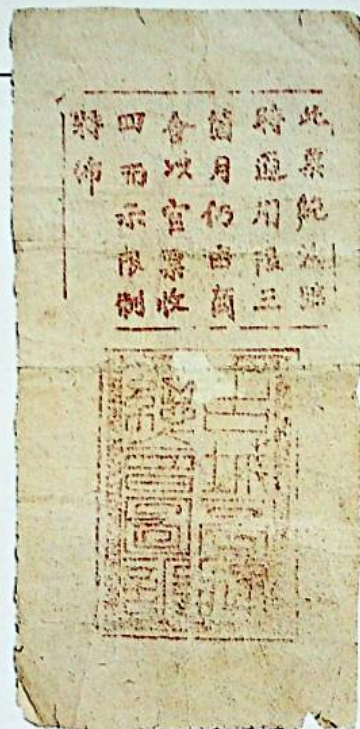 此票純為臨
時通用限三
箇月仍由商
會以官票收
回而示限制
特佈